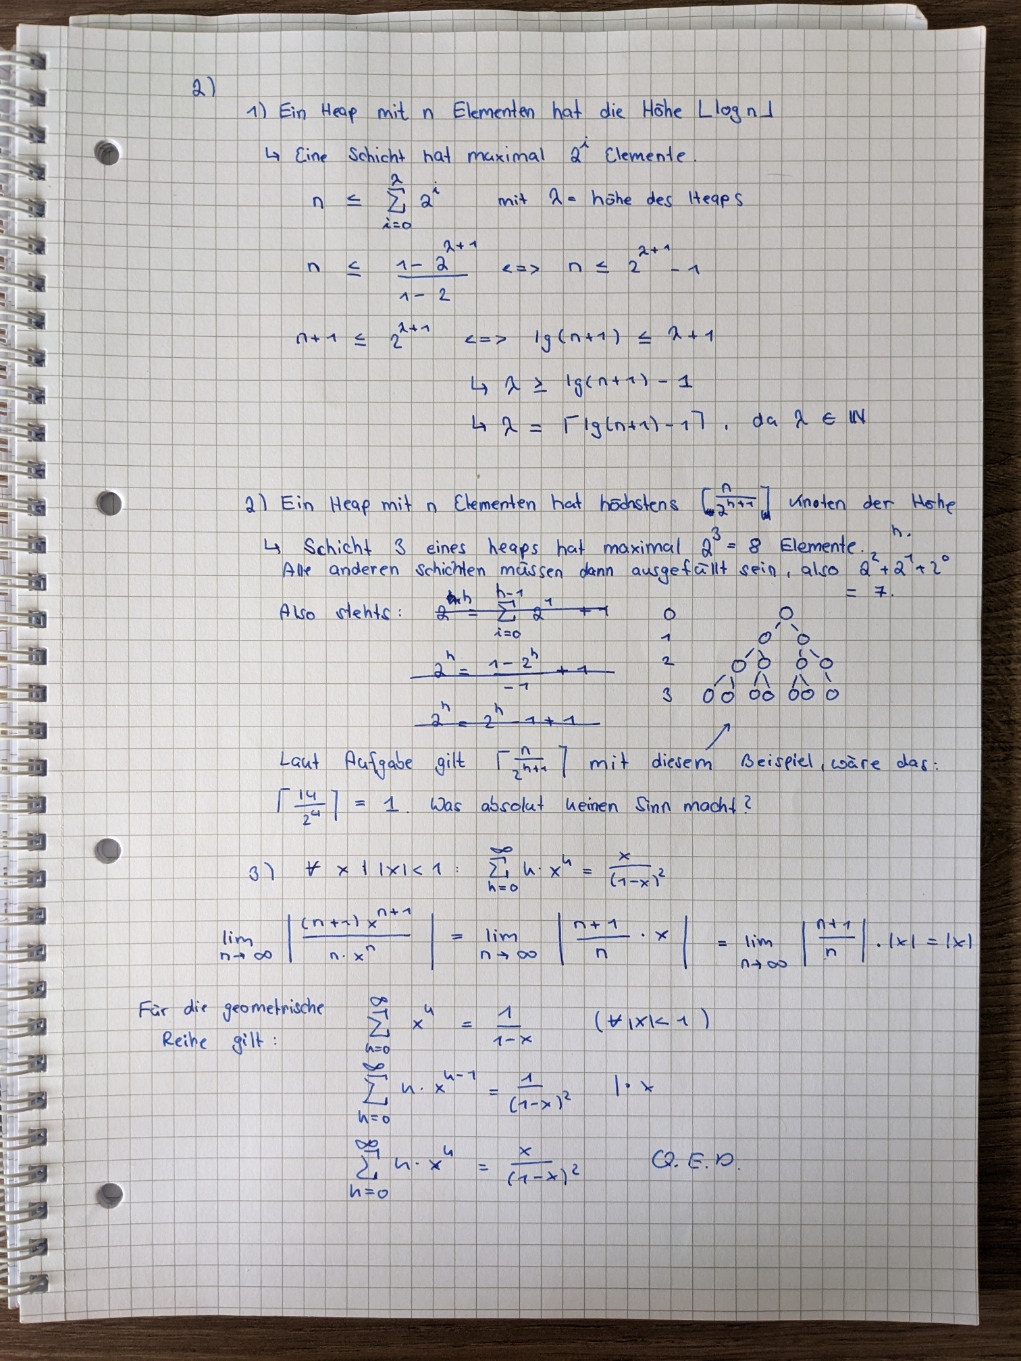 2)
1) Ein Heap mit n Elementen hat die Höhe ⌊log n⌋
↳ Eine Schicht hat maximal 2^i Elemente.
n ≤ ∑_{i=0}^{λ} 2^i mit λ = höhe des Heaps
n ≤ (1 - 2^{λ+1})/(1 - 2) <=> n ≤ 2^{λ+1} - 1
n+1 ≤ 2^{λ+1} <=> lg(n+1) ≤ λ+1
↳ λ ≥ lg(n+1) - 1
↳ λ = ⌈lg(n+1) - 1⌉, da λ ∈ ℕ
2) Ein Heap mit n Elementen hat höchstens ⌈n/2^{h+1}⌉ Knoten der Höhe h.
↳ Schicht 3 eines heaps hat maximal 2^3 = 8 Elemente.
Alle anderen schichten müssen dann ausgefüllt sein, also 2^2 + 2^1 + 2^0
= 7.
Also stehts: 2^h = ∑_{i=0}^{h-1} 2^i + 1 0
1
2^h = (1 - 2^h)/(-1) + 1 2
2^h = 2^h - 1 + 1 3
Laut Aufgabe gilt ⌈n/2^{h+1}⌉ mit diesem Beispiel, wäre das:
⌈14/2^4⌉ = 1. Was absolut keinen Sinn macht?
3) ∀ x | |x| < 1 : ∑_{k=0}^{∞} k · x^k = x/(1-x)^2
lim_{n→∞} |((n+1) x^{n+1})/(n · x^n)| = lim_{n→∞} |(n+1)/n · x| = lim_{n→∞} |(n+1)/n| · |x| = |x|
Für die geometrische ∑_{k=0}^{∞} x^k = 1/(1-x) (∀ |x| < 1)
Reihe gilt:
∑_{k=0}^{∞} k · x^{k-1} = 1/(1-x)^2 | · x
∑_{k=0}^{∞} k · x^k = x/(1-x)^2 Q.E.D.